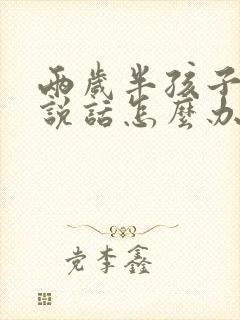 兩歲半孩子
說話怎麼办
党李鑫